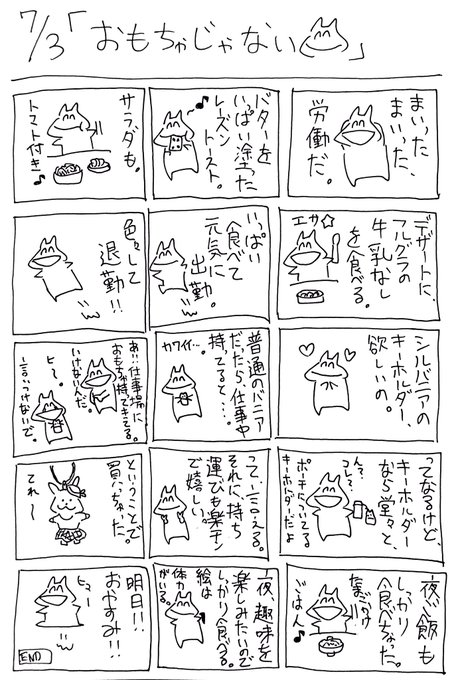 7/3「おもちゃじゃない」
まいった
まいった、
労働だ。
バターを
いっぱい塗った
レーズン
トースト。
♪
サラダも。
トマト付き♪
デザートに、
フルグラの
牛乳なし
を食べる。
エサ☆
いっぱい
食べて
元気に
出勤。
色々して
退勤!!
シルバニアの
キーホルダー、
欲しいの。
普通のバニア
だったら、仕事中
持てると…。
カワイイ…。
あ!!仕事場に、
おもちゃ持てきてる。
いけないんだ。
ヒ〜。
言いつけないで。
ってなるけど、
キーホルダー
なら堂々と、
コレ?
ポーチについてる
キーホルダーだよ
って、言える。
それに、持ち
運びも楽チン
で嬉しい。
ということで
買っちゃった。
てれ〜
夜ご飯も
しっかり
食べちゃった。
ごはん♪
夜、趣味を
楽しみたいので
しっかり食べる。
絵は
体力
がいる。
明日!!
おやすみ!!
ヒュー
END